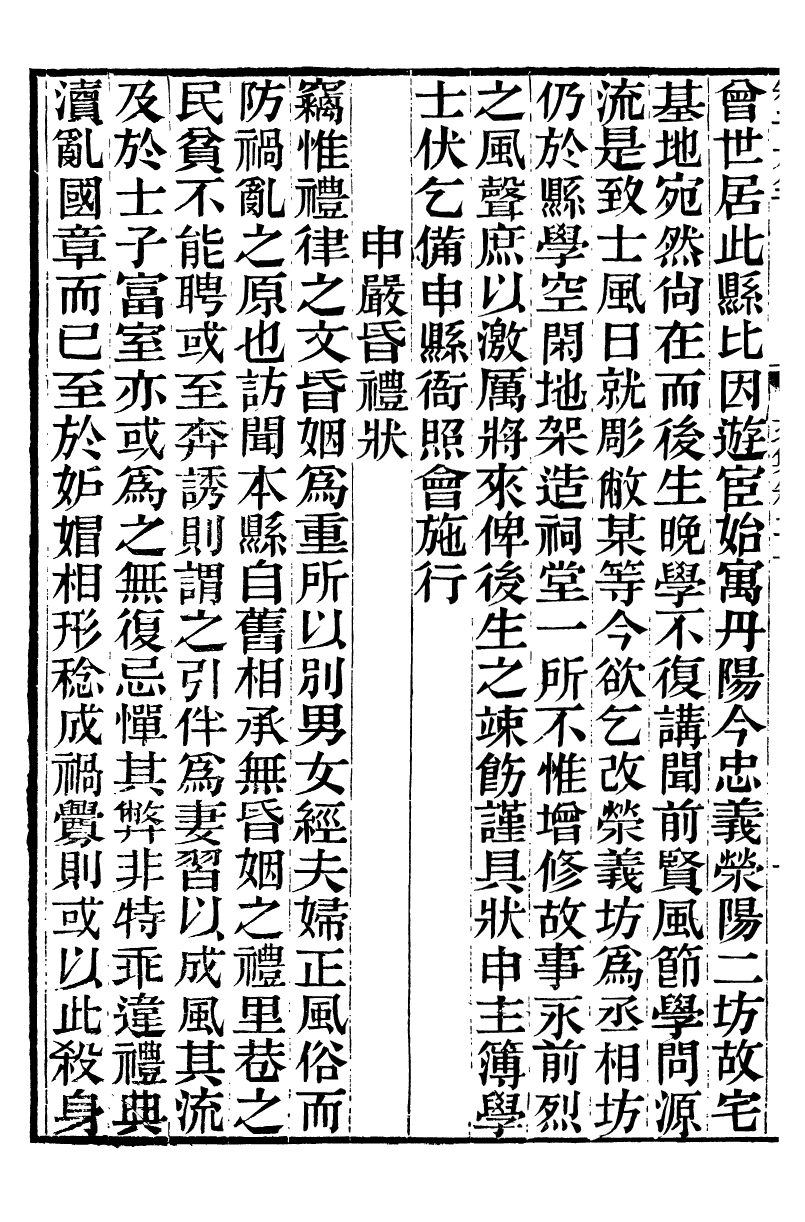 曾世居此縣比因遊宦始寓丹陽今忠義榮陽二坊故宅
基地宛然尙在而後生晚學不復講聞前賢風節學問源
流是致士風日就彫敝某等今欲乞改榮義坊爲丞相坊
仍於縣學空閑地架造祠堂一所不惟增修故事永前烈
之風聲庶以激厲將來俾後生之竦飭謹具狀申主簿學
士伏乞備申縣衙照會施行
申嚴昏禮狀
竊惟禮律之文昏姻爲重所以別男女經夫婦正風俗而
防禍亂之原也訪聞本縣自舊相承無昏姻之禮里巷之
民貧不能聘或至奔誘則謂之引伴爲妻習以成風其流
及於士子富室亦或爲之無復忌憚其弊非特乖違禮典
瀆亂國章而已至於妒媢相形稔成禍釁則或以此殺身